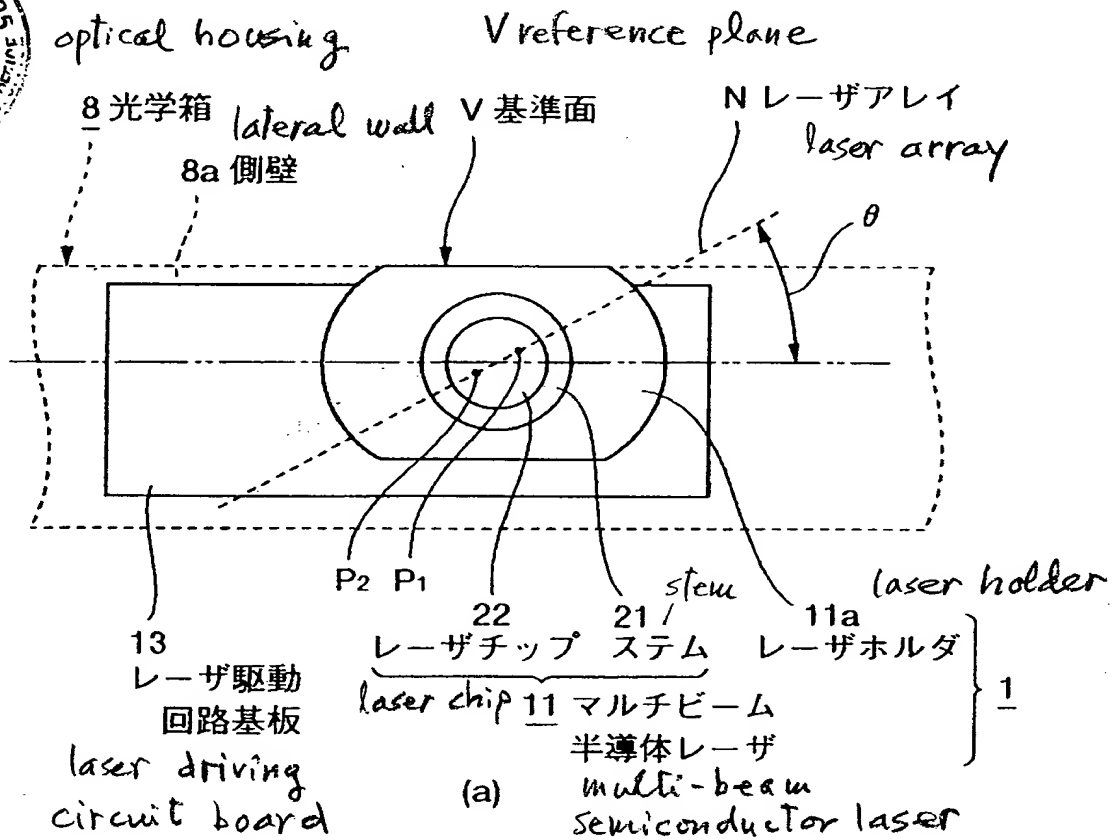 optical housing
V reference plane
8 光学箱
lateral wall
V 基準面
N レーザアレイ
laser array
8a 側壁
θ
P2 P1
22
21
stem
11a
laser holder
13
レーザチップ
ステム
レーザホルダ
1
レーザ駆動
回路基板
laser chip
11 マルチビーム
半導体レーザ
laser driving
circuit board
(a)
multi-beam
semiconductor laser